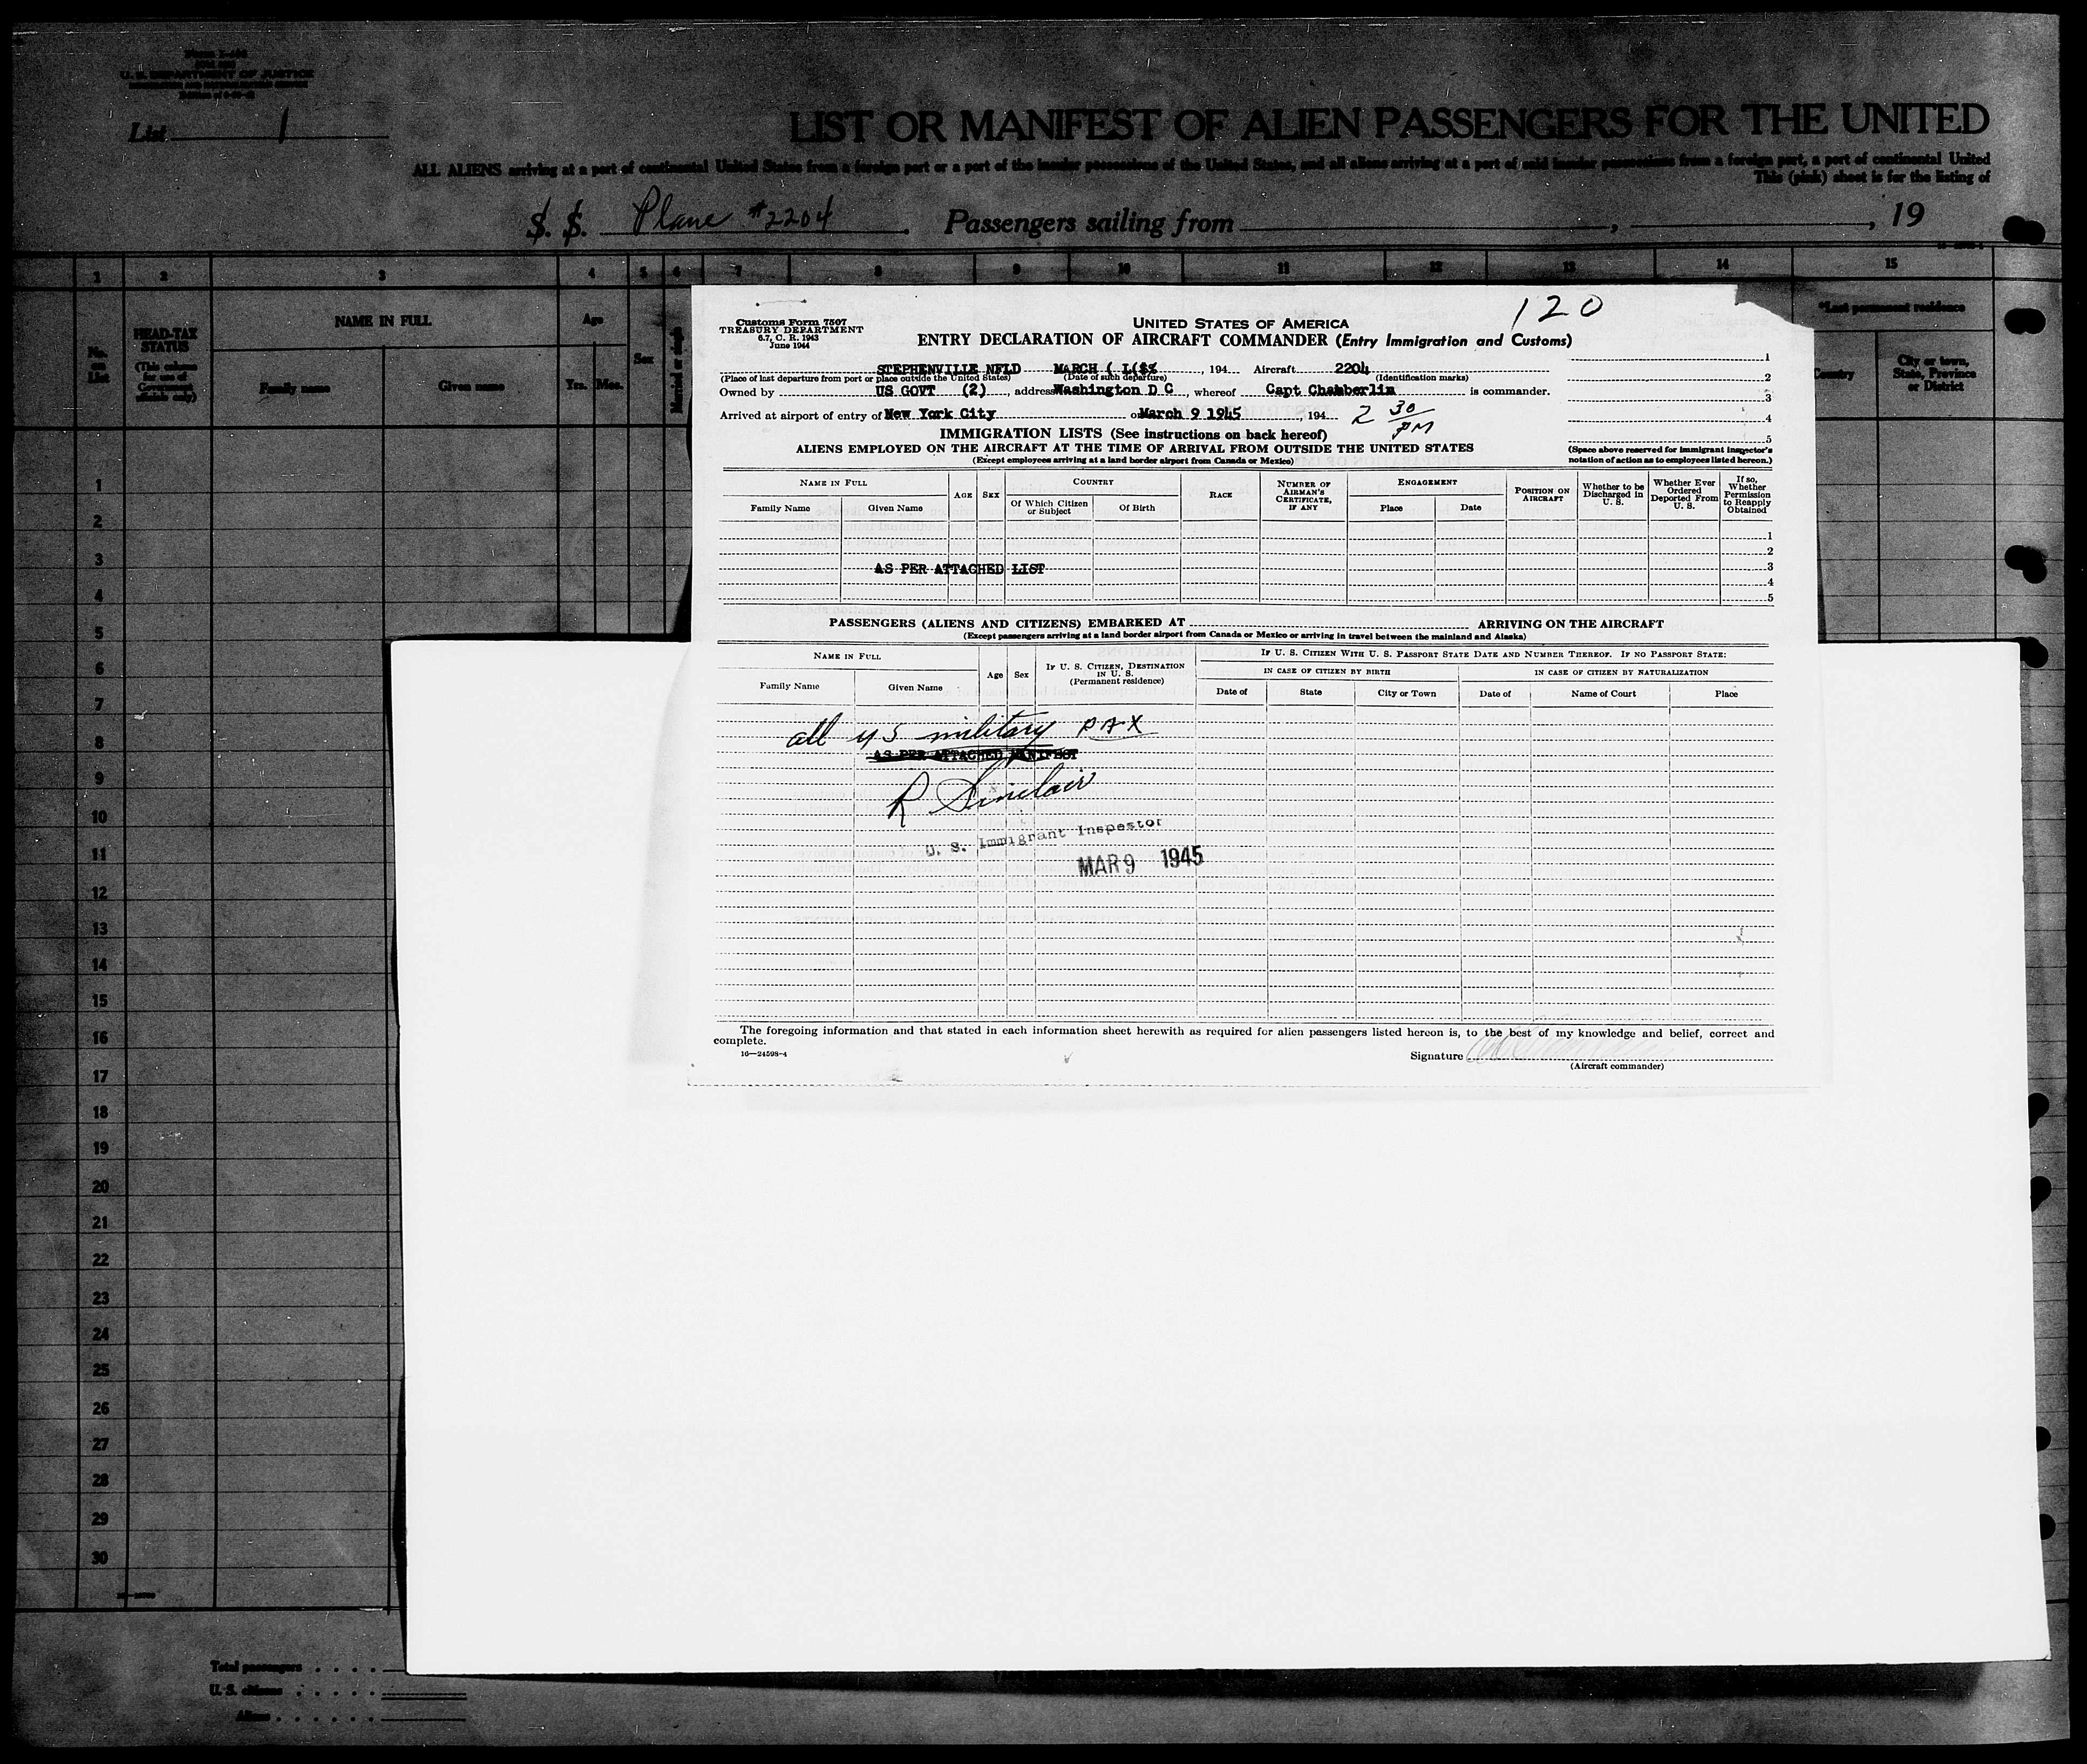 U. S. DEPARTMENT OF JUSTICE
List 1
LIST OR MANIFEST OF ALIEN PASSENGERS FOR THE UNITED
ALL ALIENS arriving at a port of continental United States from a foreign port or a port of the insular possessions of the United States, and all aliens arriving at a port of said insular possessions from a foreign port, a port of continental United
This (pink) sheet is for the listing of
S. S. Plane #2204. Passengers sailing from , , 19
1 2 3 4 5 6 7 8 9 10 11 12 13 14 15
No. on List
HEAD-TAX STATUS
(This column for use of Government officials only)
NAME IN FULL
Family name
Given name
Age
Yrs. Mos.
Sex
Married or single
*Last permanent residence
Country
City or town, State, Province or District
1
2
3
4
5
6
7
8
9
10
11
12
13
14
15
16
17
18
19
20
21
22
23
24
25
26
27
28
29
30
Total passengers
U. S. citizens
Aliens
120
Customs Form 7507
TREASURY DEPARTMENT
6.7, C. R. 1943
June 1944
UNITED STATES OF AMERICA
ENTRY DECLARATION OF AIRCRAFT COMMANDER (Entry Immigration and Customs)
STEPHENVILLE NFLD MARCH ( L($%, 194 Aircraft 2204
(Place of last departure from port or place outside the United States) (Date of such departure) (Identification marks)
Owned by US GOVT (2), address Washington D C, whereof Capt Chamberlin is commander.
Arrived at airport of entry of New York City on March 9 1945, 194 2 30 PM
1
2
3
4
5
(Space above reserved for immigrant inspector's notation of action as to employees listed hereon.)
IMMIGRATION LISTS (See instructions on back hereof)
ALIENS EMPLOYED ON THE AIRCRAFT AT THE TIME OF ARRIVAL FROM OUTSIDE THE UNITED STATES
(Except employees arriving at a land border airport from Canada or Mexico)
NAME IN FULL
Family Name Given Name
AGE SEX
COUNTRY
Of Which Citizen or Subject
Of Birth
RACE
NUMBER OF AIRMAN'S CERTIFICATE, IF ANY
ENGAGEMENT
Place Date
POSITION ON AIRCRAFT
Whether to be Discharged in U. S.
Whether Ever Ordered Deported From U. S.
If so, Whether Permission to Reapply Obtained
1
2
AS PER ATTACHED LIST 3
4
5
PASSENGERS (ALIENS AND CITIZENS) EMBARKED AT ARRIVING ON THE AIRCRAFT
(Except passengers arriving at a land border airport from Canada or Mexico or arriving in travel between the mainland and Alaska)
NAME IN FULL
Family Name Given Name
Age Sex
IF U. S. CITIZEN, DESTINATION IN U. S. (Permanent residence)
IF U. S. CITIZEN WITH U. S. PASSPORT STATE DATE AND NUMBER THEREOF. IF NO PASSPORT STATE:
IN CASE OF CITIZEN BY BIRTH
IN CASE OF CITIZEN BY NATURALIZATION
Date of State City or Town Date of Name of Court Place
all US military PAX
AS PER ATTACHED MANIFEST
R Sinclair
U. S. Immigrant Inspector
MAR 9 1945
The foregoing information and that stated in each information sheet herewith as required for alien passengers listed hereon is, to the best of my knowledge and belief, correct and
complete.
16—24598-4
Signature
(Aircraft commander)